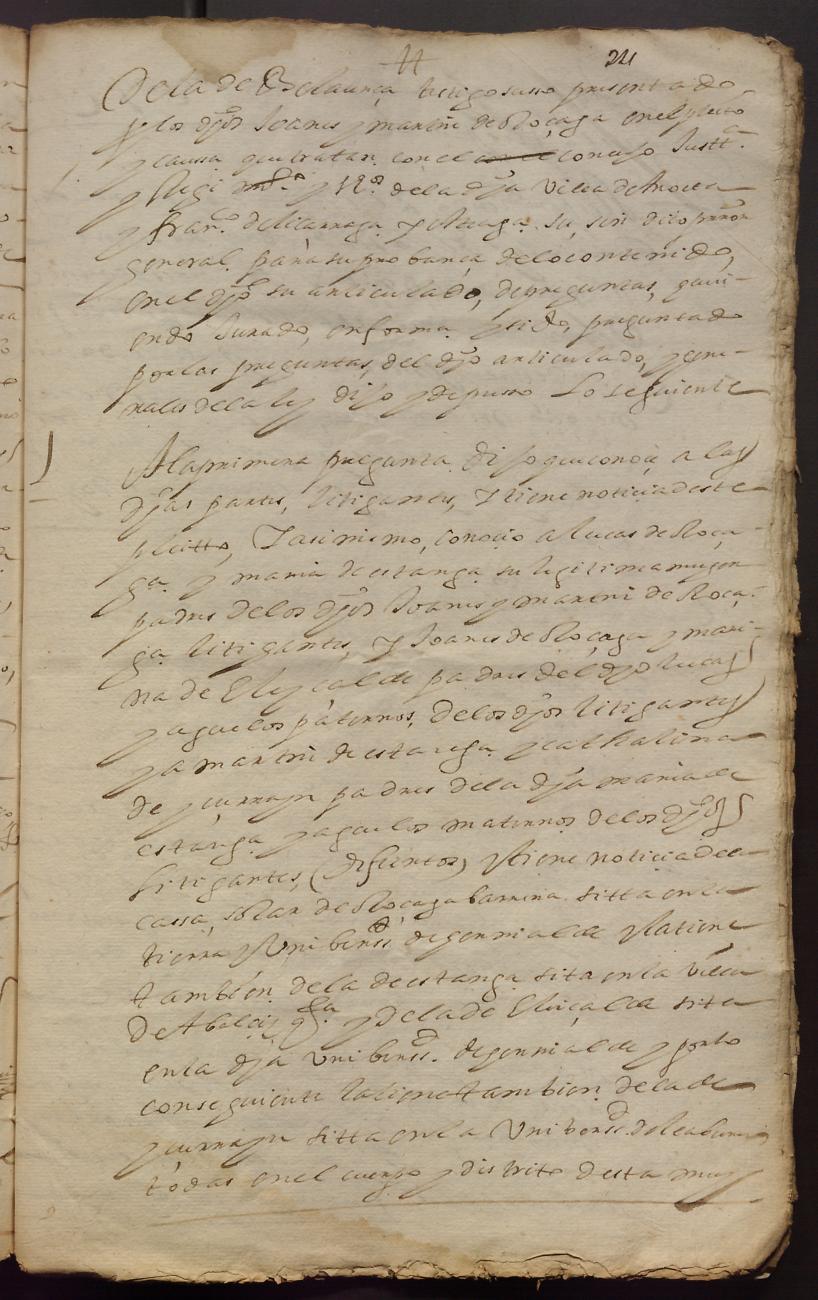 tt 24
De la de Eslaunça testigo suso presentado
p.r los dhos Joanes y martin de Roçaga en el pleito
y caussa que tratan con el concejo Justt.ª
y Regim.to y V.os de la dha Villa de
y fran.co de Licarraga y Arteaga su sin dico prou.or
general para su probança de lo contenido
en el dho su articulado, de preguntas, haui-
endo Jurado, en forma y sido, preguntado
por las preguntas, del dho articulado, y gene-
rales de la ley dijo y depusso Lo seguiente
A la primera pregunta dijo que conoçe a las
dhas partes, litigantes, y tiene noticia deste
pleitto, Y asi mismo, conocio a lucas de Roça-
ga y maria de estanga su legitima muger
padres de los dhos Joanes y martin de Roça-
ga litigantes, y Joanes de Roçaga y mari-
na de Eleyçalde padres del dho lucas
y aguelos paternos, de los dhos litigantes
y a martin de estanga y cathalina
de yurrayn padres de la dha maria de
estanga y aguelos maternos de los dhos
litigantes, (difuntos) y tiene noticia de la
cassa, solar de Roçaga barrena sitta en la
tierra y Unibersi.d de gorrialde y la tiene
tambien de la de estanga sita en la Villa
De Abalçiz q.ta y de la de Eleiçalde sita
en la dha Unibersi.d de gorrialde y por lo
conseguiente la tiene tambien de la de
yurrayn sitta en la Unibersi.d de leaburu
todas en el cuerpo y distrito desta muy